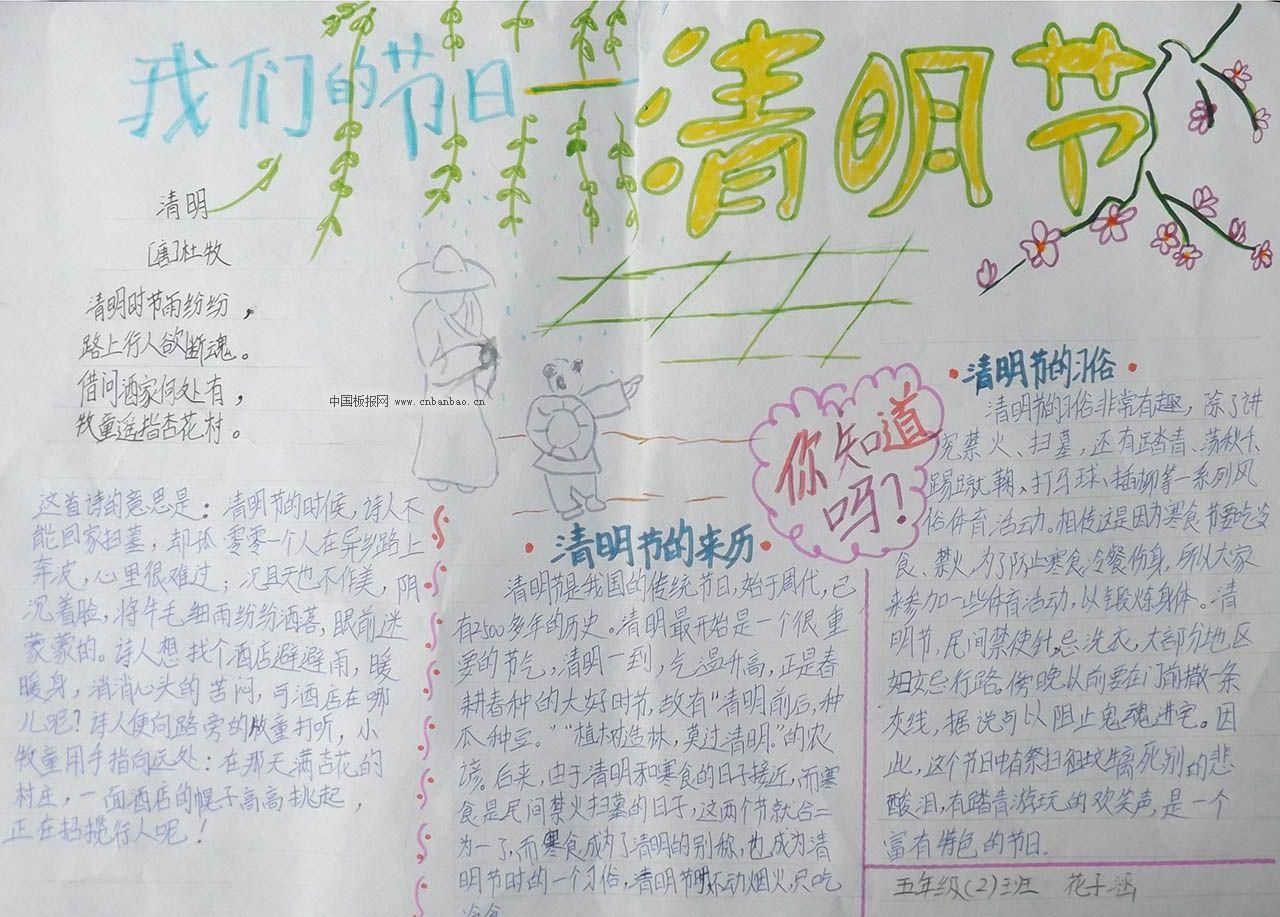 我们的节日
清明节
清明
[唐]杜牧
清明时节雨纷纷，
路上行人欲断魂。
借问酒家何处有，
牧童遥指杏花村。
中国板报网 www.cnbanbao.cn
这首诗的意思是：清明节的时候，诗人不
能回家扫墓，却孤零零一个人在异乡路上
奔波，心里很难过；况且天也不作美，阴
沉着脸，将牛毛细雨纷纷洒落，眼前迷
蒙蒙的。诗人想找个酒店避避雨，暖
暖身，消消心头的苦闷，可酒店在哪
儿呢？诗人便向路旁的牧童打听，小
牧童用手指向远处：在那天满杏花的
村庄，一面酒店的幌子高高挑起，
正在招揽行人呢！
清明节的来历
清明节是我国的传统节日，始于周代，已
有2500多年的历史。清明最开始是一个很重
要的节气，清明一到，气温升高，正是春
耕春种的大好时节，故有“清明前后，种
瓜种豆。”“植树造林，莫过清明。”的农
谚。后来，由于清明和寒食的日子接近，而寒
食是民间禁火扫墓的日子，这两个节就合二
为一了，而寒食成为了清明的别称，也成为清
明节时的一个习俗，清明节时不动烟火，只吃
你知道
吗？
清明节的习俗
清明节的习俗非常有趣，除了讲
究禁火、扫墓，还有踏青、荡秋千、
踢蹴鞠、打马球、插柳等一系列风
俗体育活动。相传这是因为寒食节要吃冷
食、禁火，为了防止寒食冷餐伤身，所以大家
来参加一些体育活动，以锻炼身体。清
明节，民间禁使针，忌洗衣，大部分地区
妇女忌行路。傍晚以前要在门前撒一条
灰线，据说可以阻止鬼魂进宅。因
此，这个节日中有祭扫祖坟生离死别的悲
酸泪，有踏青游玩的欢笑声，是一个
富有特色的节日.
五年级(2)班 花子涵